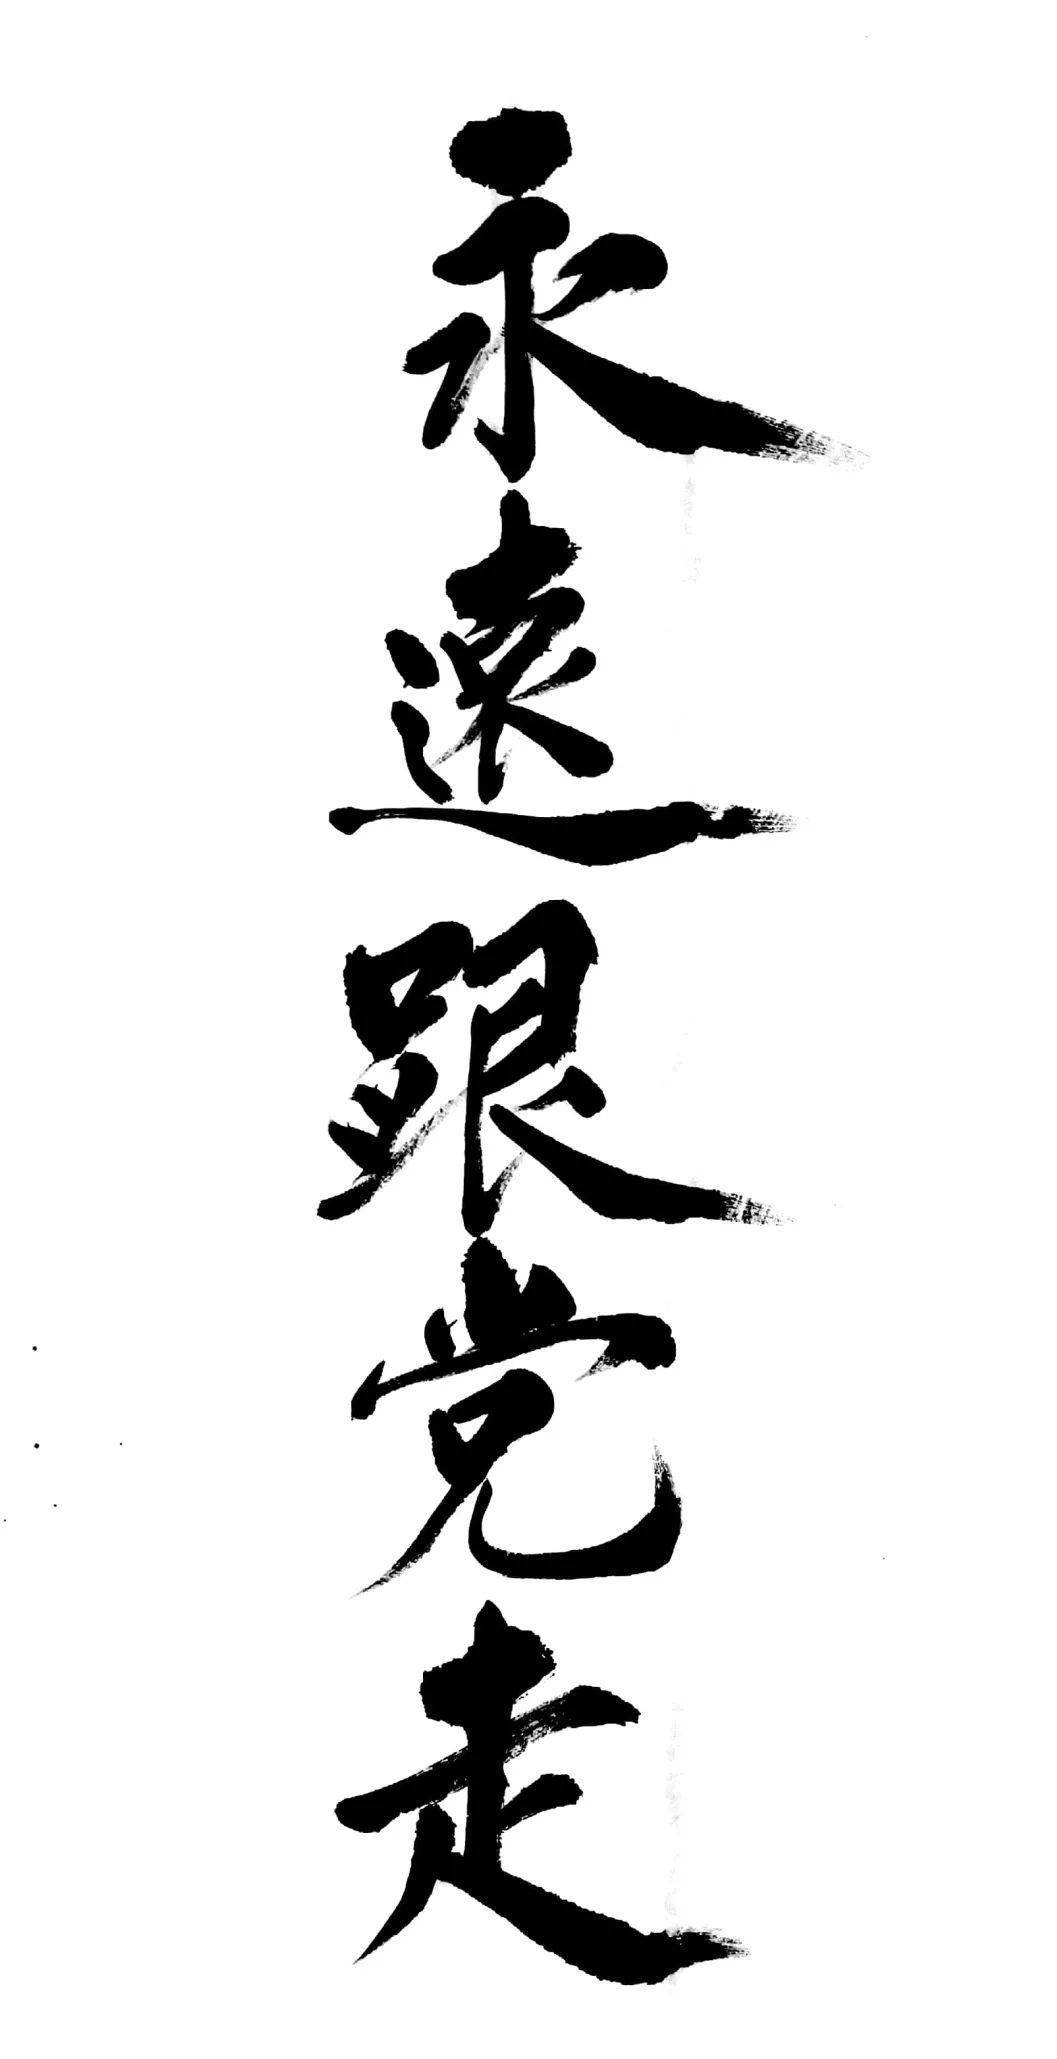 永遠跟党走